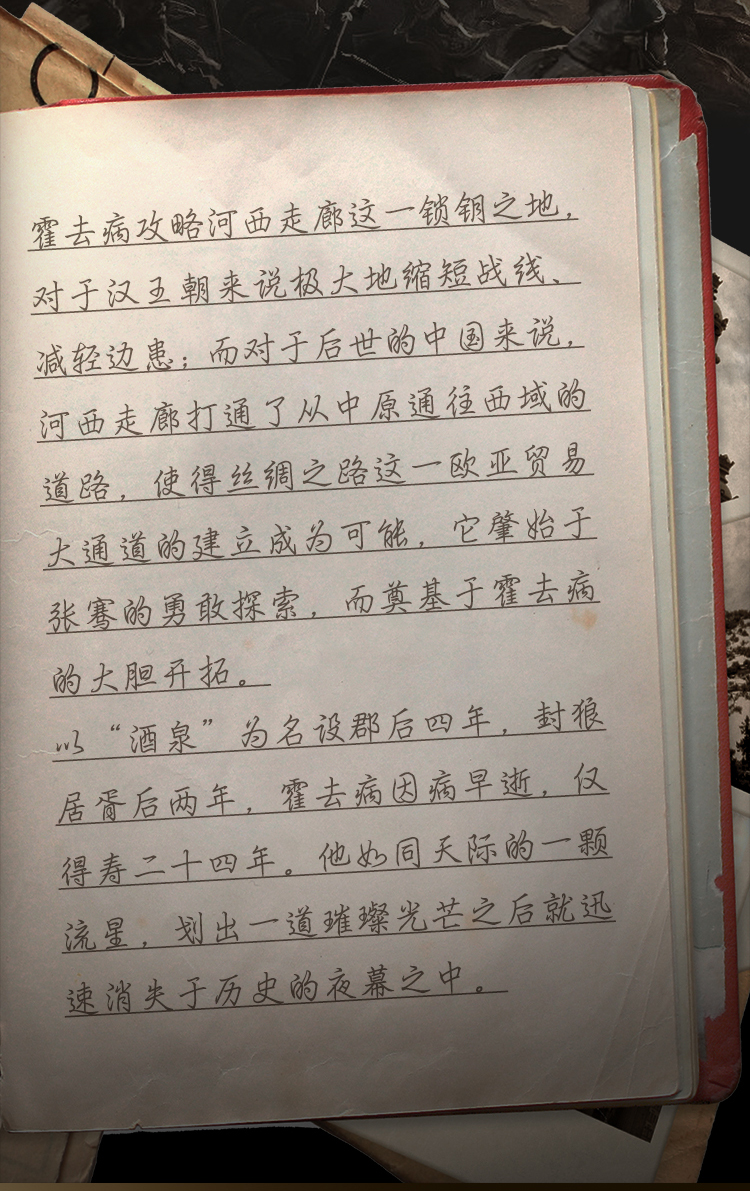 霍去病攻略河西走廊这一锁钥之地，
对于汉王朝来说极大地缩短战线、
减轻边患；而对于后世的中国来说，
河西走廊打通了从中原通往西域的
道路，使得丝绸之路这一欧亚贸易
大通道的建立成为可能，它肇始于
张骞的勇敢探索，而奠基于霍去病
的大胆开拓。
以“酒泉”为名设郡后四年，封狼
居胥后两年，霍去病因病早逝，仅
得寿二十四年。他如同天际的一颗
流星，划出一道璀璨光芒之后就迅
速消失于历史的夜幕之中。